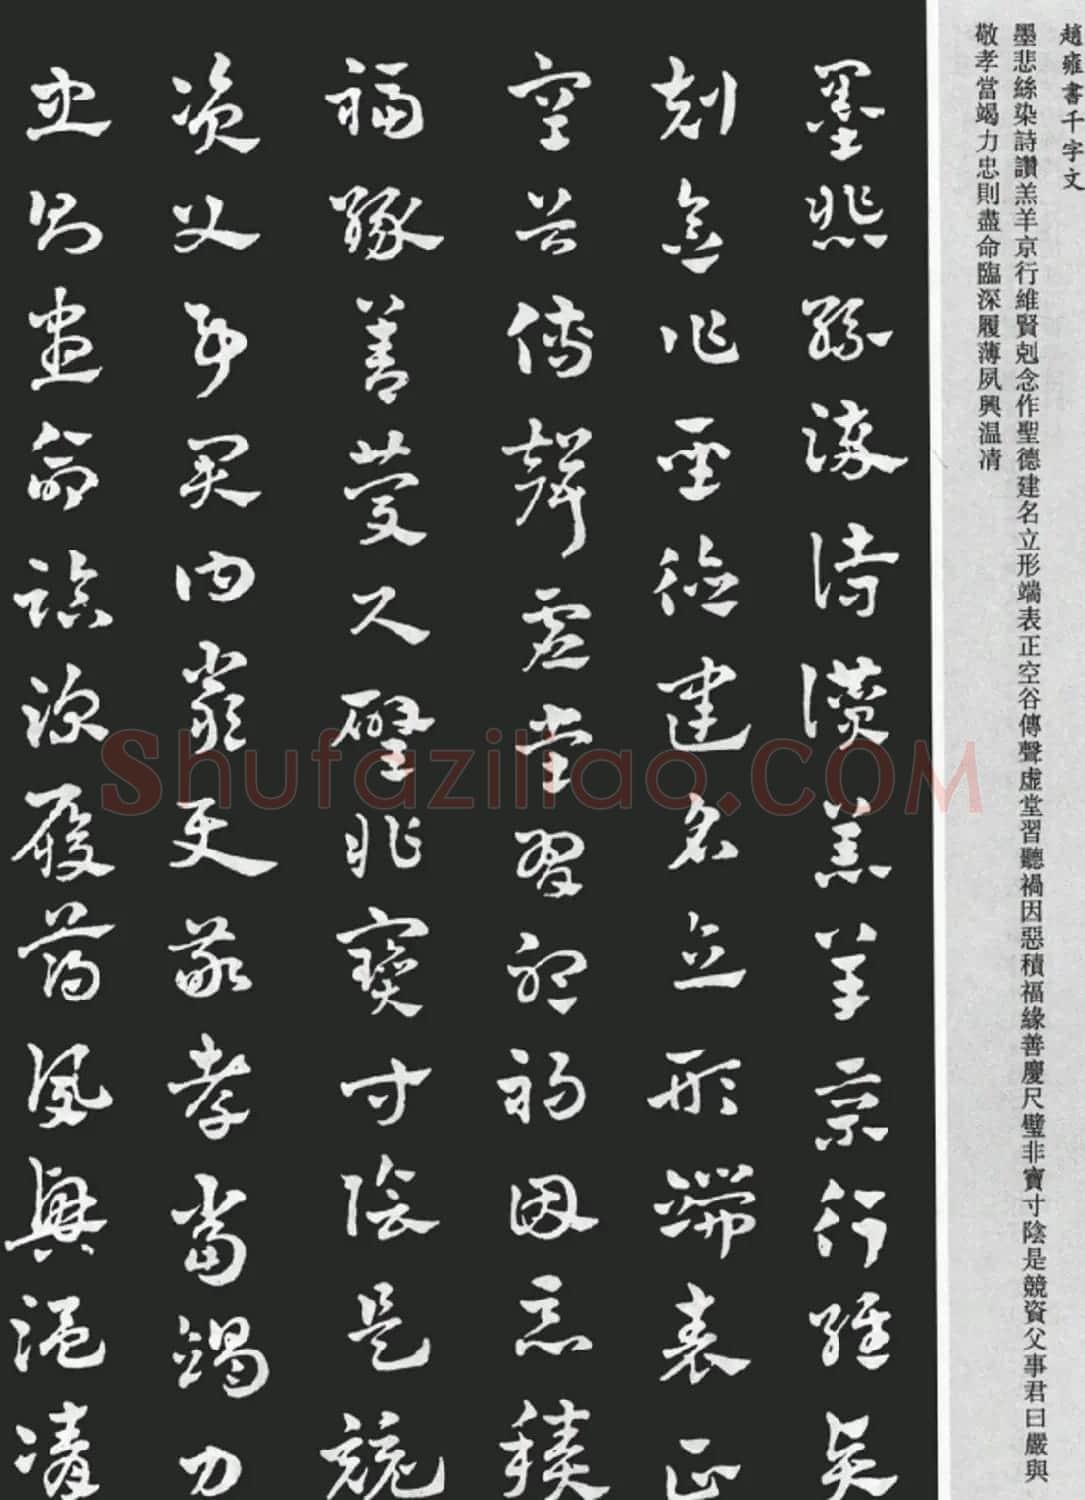 趙雍書千字文
墨悲絲染詩讚羔羊京行維賢剋念作聖德建名立形端表正空谷傳聲虚堂習聽禍因惡積福緣善慶尺璧非寶寸陰是競資父事君曰嚴與
敬孝當竭力忠則盡命臨深履薄夙興温凊
墨悲絲染詩讚羔羊京行維賢
剋念作聖德建名立形端表正
空谷傳聲虚堂習聽禍因惡積
福緣善慶尺璧非寶寸陰是競
資父事君曰嚴與敬孝當竭力
忠則盡命臨深履薄夙興温凊
Shufaziliao.COM